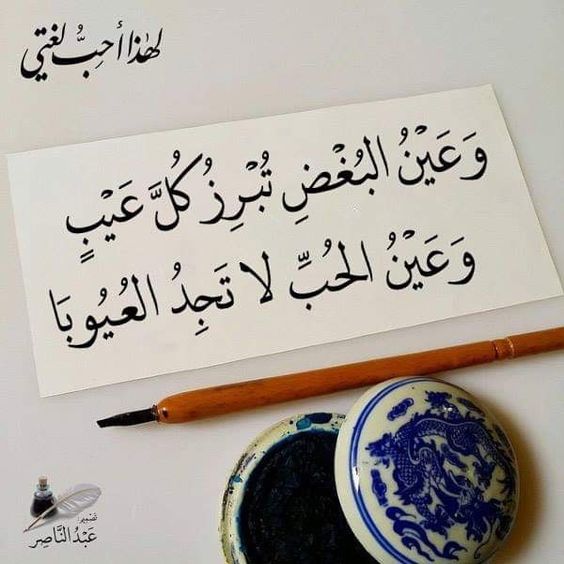 لهٰذا أحِبُّ لغتي
وَعَيْنُ البُغْضِ تُبْرِزُ كُلَّ عَيْبٍ
وَعَيْنُ الحُبِّ لا تَجِدُ العُيُوبَا
تصميم:
عَبْدُ النَّاصِر